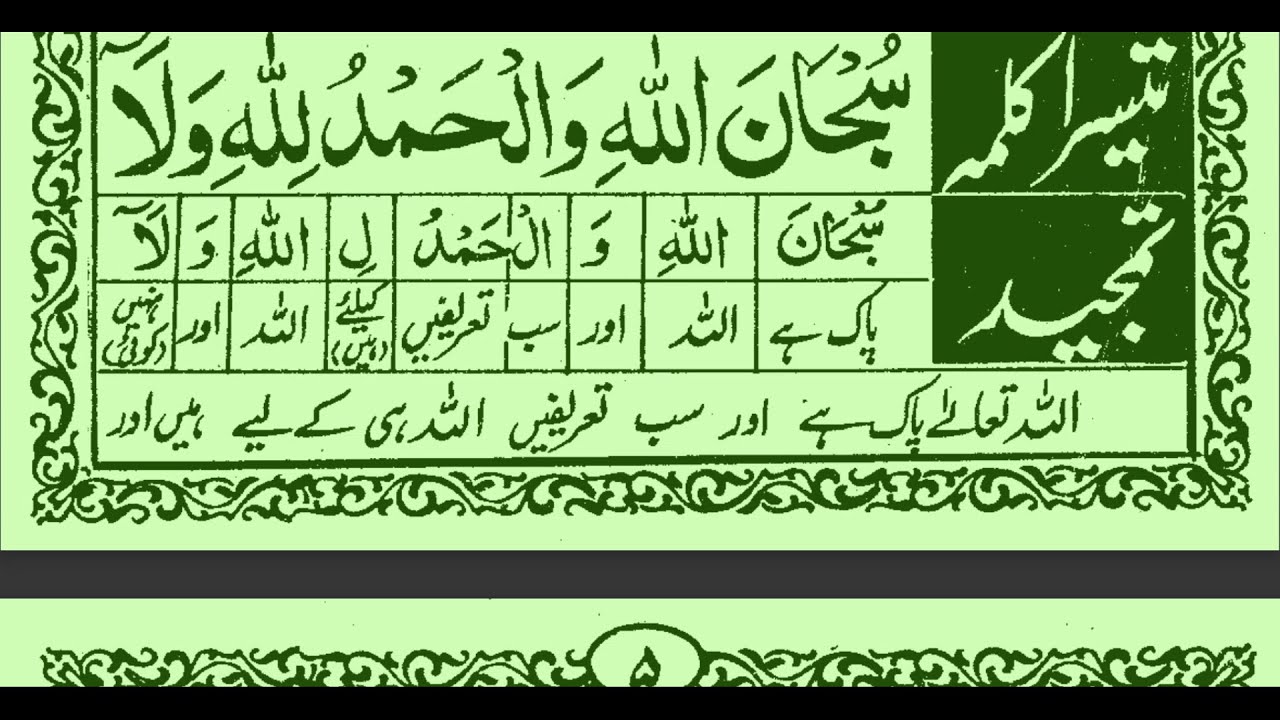 تیسرا کلمہ
تمجید
سُبْحَانَ اللّٰهِ وَالْحَمْدُ لِلّٰهِ وَلَآ
سُبْحَانَ اللّٰهِ وَ الْحَمْدُ لِ اللّٰهِ وَ لَآ
پاک ہے اللہ اور سب تعریفیں کیلئے (ہیں) اللہ اور نہیں (کوئی)
اللہ تعالےٰ پاک ہے اور سب تعریفیں اللہ ہی کے لیے ہیں اور
۵